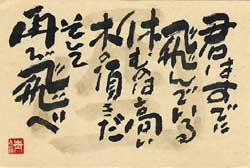 君はすでに
飛んでいる
休むのは高い
木の頂きだ
そして
再び飛べ